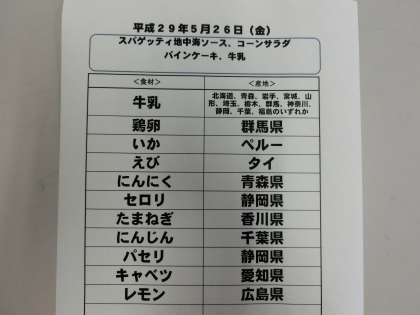 平成29年5月26日（金）
スパゲッティ地中海ソース、コーンサラダ
パインケーキ、牛乳
＜食材＞ ＜産地＞
牛乳 北海道、青森、岩手、宮城、山
形、埼玉、栃木、群馬、神奈川、
静岡、千葉、福島のいずれか
鶏卵 群馬県
いか ペルー
えび タイ
にんにく 青森県
セロリ 静岡県
たまねぎ 香川県
にんじん 千葉県
パセリ 静岡県
キャベツ 愛知県
レモン 広島県